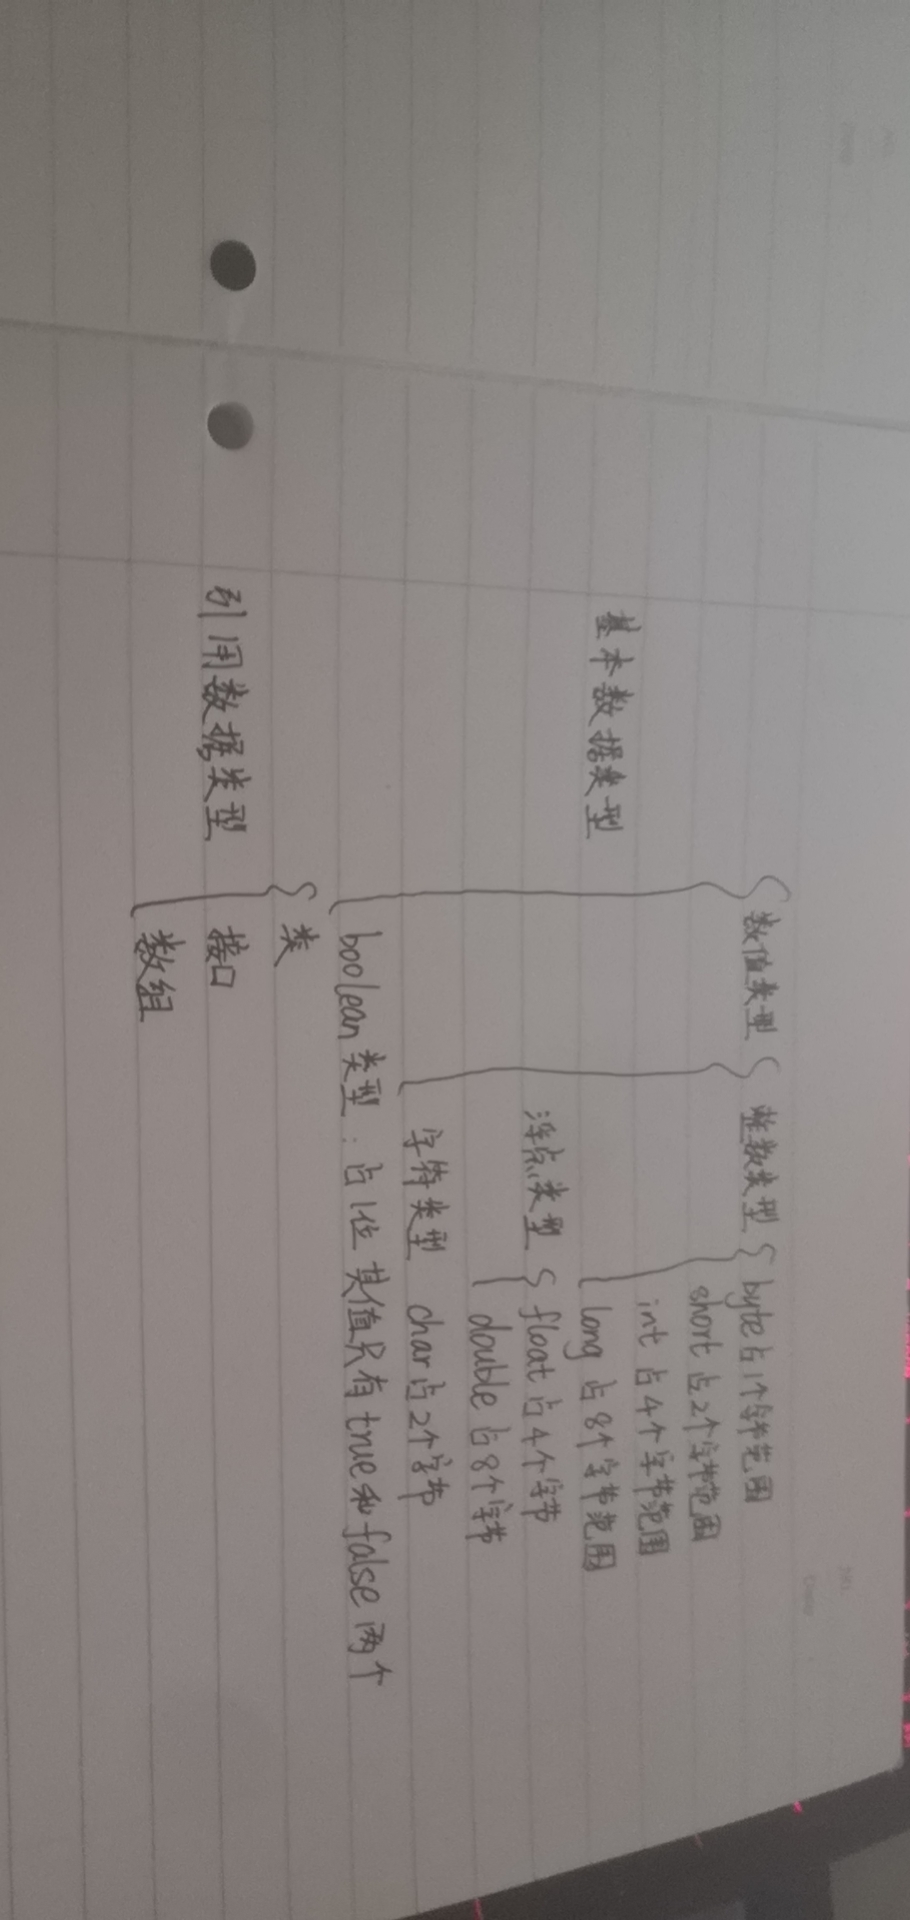 数值类型 整数类型 byte占1个字节范围
short占2个字节范围
int占4个字节范围
long占8个字节范围
基本数据类型
浮点类型 float占4个字节
double占8个字节
字符类型 char占2个字节
boolean类型:占1位 其值只有true和false两个
类
引用数据类型 接口
数组